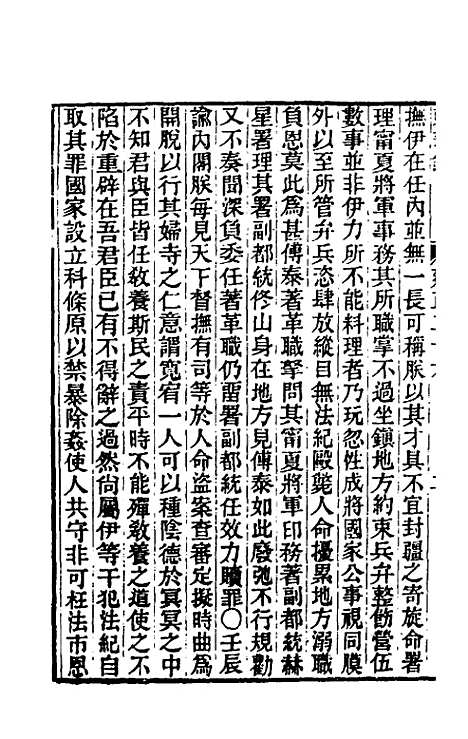 撫伊在任內並無一長可稱朕以其才具不宜封疆之寄旋命署
理甯夏將軍事務其所職掌不過坐鎮地方約束兵弁整飭營伍
數事並非伊力所不能料理者乃玩忽性成將國家公事視同膜
外以至所管弁兵恣肆放縱目無法紀毆斃人命擾累地方溺職
負恩莫此為甚傅泰著革職拏問其甯夏將軍印務著副都統赫
星署理其署副都統佟山身在地方見傅泰如此廢弛不行規勸
又不奏聞深負委任著革職仍畱署副都統任效力贖罪○壬辰
諭內閣朕每見天下督撫有司等於人命盜案查審定擬時曲為
開脫以行其婦寺之仁意謂寬宥一人可以種陰德於冥冥之中
不知君與臣皆任敎養斯民之責平時不能殫敎養之道使之不
陷於重辟在吾君臣已有不得辭之過然尙屬伊等干犯法紀自
取其罪國家設立科條原以禁暴除姦使人共守非可枉法市恩